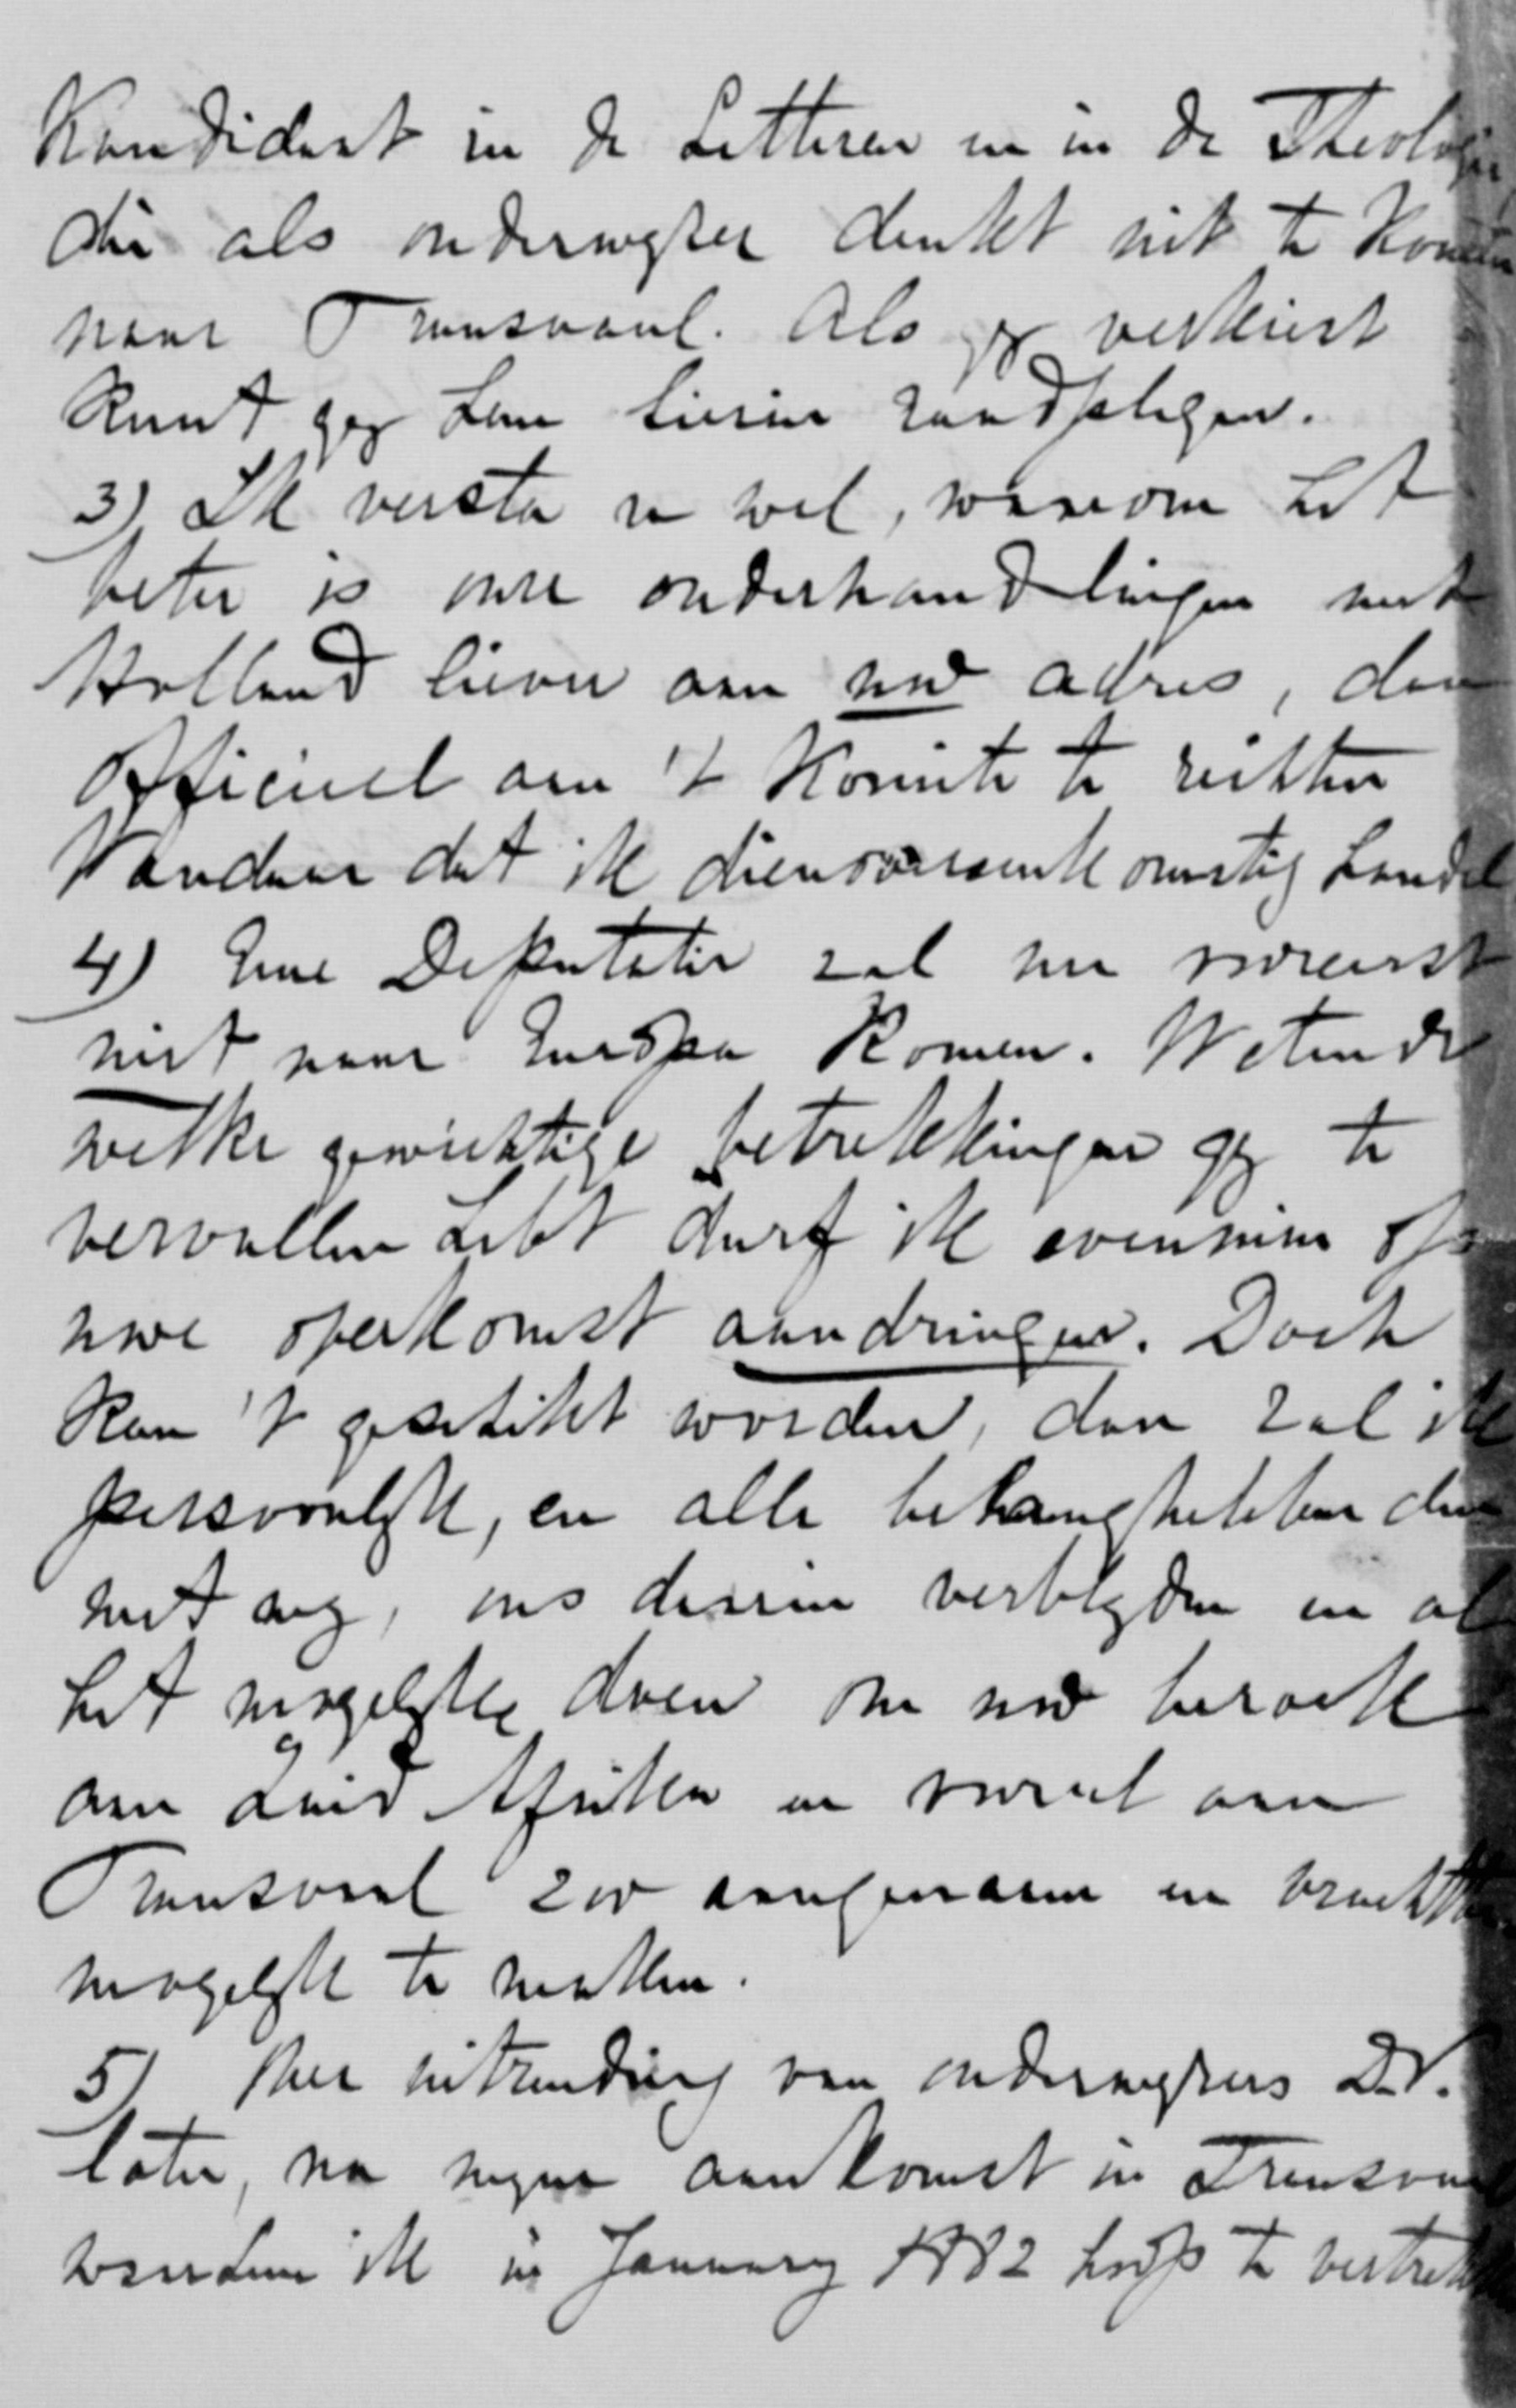 Kandidaat in de Letteren en in de Theologie
die als onderwyzer denkt uit te komen
naar Transvaal. Als gy verkiest
kunt gy hem hierin raadplegen.
3) Ik versta u wel, waarom het
beter is onze onderhandelingen met
Holland liever aan uw adres, dan
Officieel aan 't Komite te richten
Vandaar dat ik dienovereenkomstig handel
4) Eene Deputatie zal nu vooreerst
niet naar Europa komen. Wetende
welke gewichtige betrekkingen gy te
vervullen hebt durf ik evenmin op
uwe overkomst aandringen. Doch
kan 't geschikt worden, dan zal ik
persoonlyk, en alle belanghebbenden
met my, ons dessin verblyden en al
het mogelyke doen om uw bezoek
aan Zuid Afrika en vooral aan
Transvaal zoo aangenaam en vruchtbaar
mogelyk te maken.
5) Over uitzending van onderwyzers D.V.
later, na myne aankomst in Transvaal
waarheen ik in January 1882 hoop te vertrekken